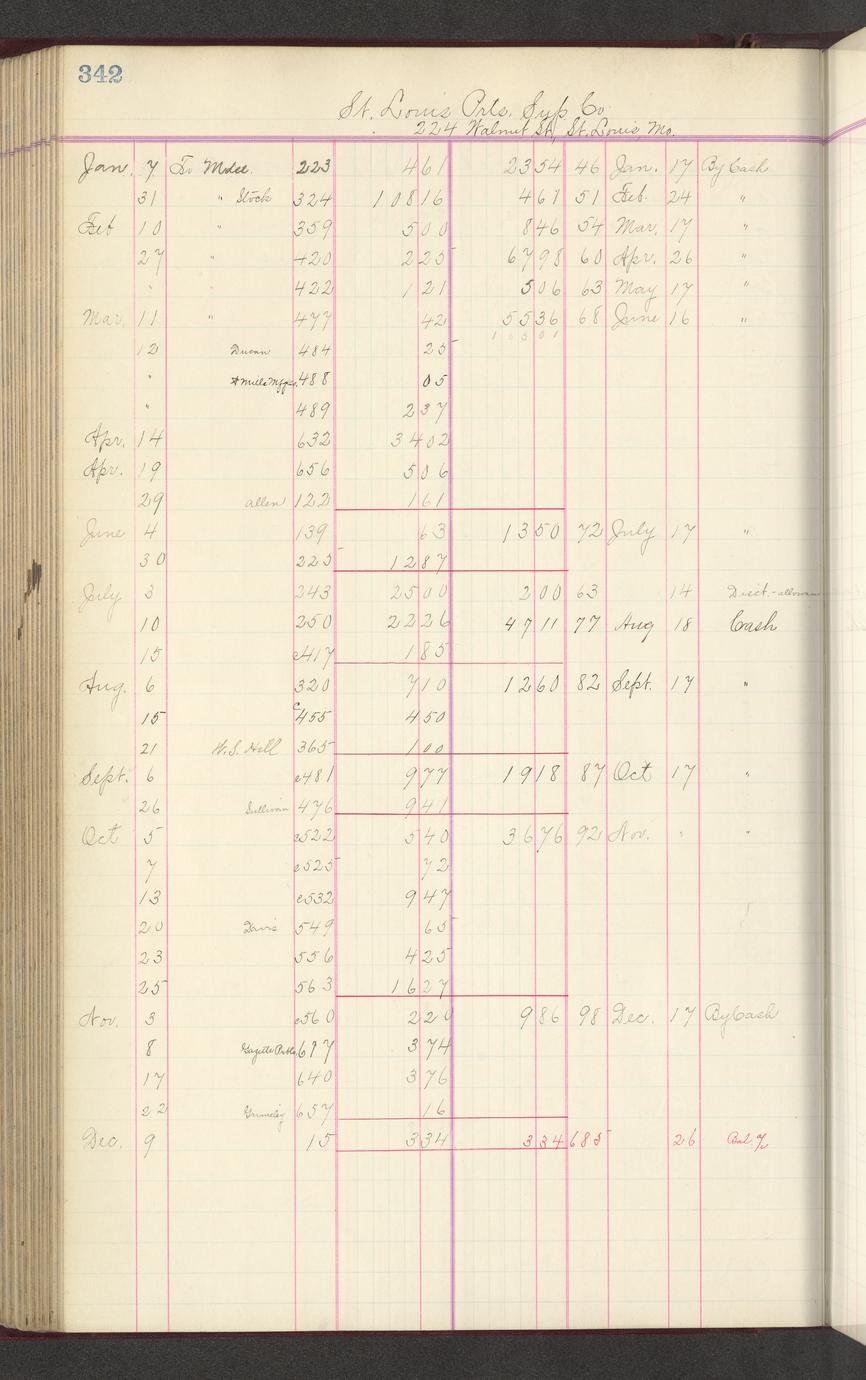 342
St. Louis Prts. Sup Co
224 Walnut St., St. Louis, Mo.
Jan. 7 To Mdse. 223 4 61 23 54 46 Jan. 17 By Cash
31 " Stock 324 108 16 4 61 51 Feb. 24 "
Feb 10 " 359 5 00 8 46 54 Mar. 17 "
27 " 420 2 25 67 98 60 Apr. 26 "
" " 422 1 21 5 06 63 May 17 "
Mar. 11 " 477 42 55 36 68 June 16 "
12 484 25
" 488 05
" 489 2 37
Apr. 14 632 34 02
Apr. 19 656 5 06
29 Allen 122 1 61
June 4 139 63 13 50 72 July 17 "
30 225 12 87
July 3 243 25 00 2 00 63 14 Disct.-
10 250 22 26 47 11 77 Aug 18 Cash
15 c417 1 85
Aug. 6 320 7 10 12 60 82 Sept. 17 "
15 c455 4 50
21 W.S. Hill 365 1 00
Sept. 6 c481 9 77 19 18 87 Oct 17 "
26 Sullivan 476 9 41
Oct 5 c522 5 40 36 76 92 Nov. " "
7 c525 72
13 c532 9 47
20 Davis 549 65
23 556 4 25
25 563 16 27
Nov. 3 c560 2 20 9 86 98 Dec. 17 By Cash
8 617 3 74
17 640 3 76
22 657 16
Dec. 9 15 3 34 3 34 685 26 Bal. %